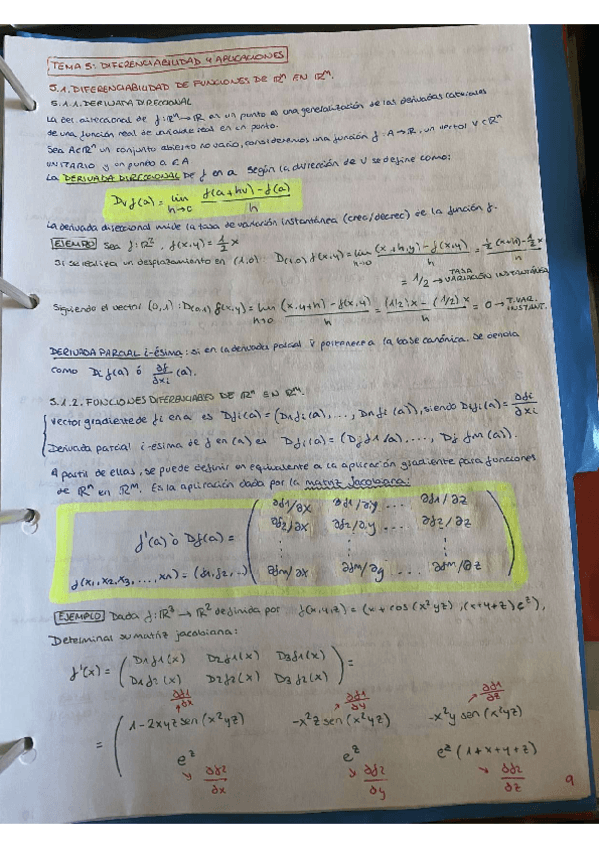 TEMA 5: DIFERENCIABILIDAD Y APLICACIONES
5.1. DIFERENCIABILIDAD DE FUNCIONES DE ℝⁿ EN ℝᵐ.
5.1.1. DERIVADA DIRECCIONAL
La der. direccional de f: ℝⁿ→ℝ en un punto es una generalización de las derivadas
de una función real de variable real en un punto.
Sea A⊂ℝⁿ un conjunto abierto no vacío, consideremos una función f: A→ℝ, un vector v∈ℝⁿ
UNITARIO y un punto a∈A
La DERIVADA DIRECCIONAL de f en a según la dirección de v se define como:
Dvf(a) = lim h→0 (f(a+hv) - f(a)) / h
La derivada direccional mide la tasa de variación instantánea (crec/decrec) de la función f.
EJEMPLO Sea f: ℝ², f(x,y) = 1/2 x
Si se realiza un desplazamiento en (1,0): D(1,0) f(x,y) = lim h→0 (f(x+h,y) - f(x,y)) / h = (1/2 (x+h) - 1/2 x) / h
= 1/2 → TASA VARIACIÓN INSTANTÁNEA
Siguiendo el vector (0,1): D(0,1) f(x,y) = lim h→0 (f(x,y+h) - f(x,y)) / h = ((1/2)x - (1/2)x) / h = 0 → T. VAR. INSTANT.
DERIVADA PARCIAL i-ésima: si en la derivada parcial v pertenece a la base canónica. Se denota
como Di f(a) ó ∂f/∂xi (a).
5.1.2. FUNCIONES DIFERENCIABLES DE ℝⁿ EN ℝᵐ.
Vector gradiente de fi en a es Dfi(a) = (D1fi(a), ..., Dnfi(a)), siendo Djfi(a) = ∂fi/∂xi
Derivada parcial i-esima de f en (a) es Djf(a) = (Djf1(a), ..., Dj fm(a)).
A partir de ellas, se puede definir un equivalente a la aplicación gradiente para funciones
de ℝⁿ en ℝᵐ. Es la aplicación dada por la matriz jacobiana:
∂f1/∂x ∂f1/∂y ... ∂f1/∂z
∂f2/∂x ∂f2/∂y ... ∂f2/∂z
f'(a) ò Df(a) = ⋮ ⋮ ⋮
f(x1, x2, x3, ..., xn) = (f1, f2, ..) ∂fm/∂x ∂fm/∂y ... ∂fm/∂z
EJEMPLO Dada f: ℝ³→ℝ² definida por f(x,y,z) = (x+cos(x²yz), (x+y+z)eᶻ),
Determinar su matriz jacobiana:
f'(x) = ( D1f1(x) D2f1(x) D3f1(x)
D1f2(x) D2f2(x) D3f2(x) ) =
∂f1/∂x ∂f1/∂y ∂f1/∂z
= ( 1-2xyz sen(x²yz) -x²z sen(x²yz) -x²y sen(x²yz)
eᶻ eᶻ eᶻ(1+x+y+z)
∂f2/∂x ∂f2/∂y ∂f2/∂z
9